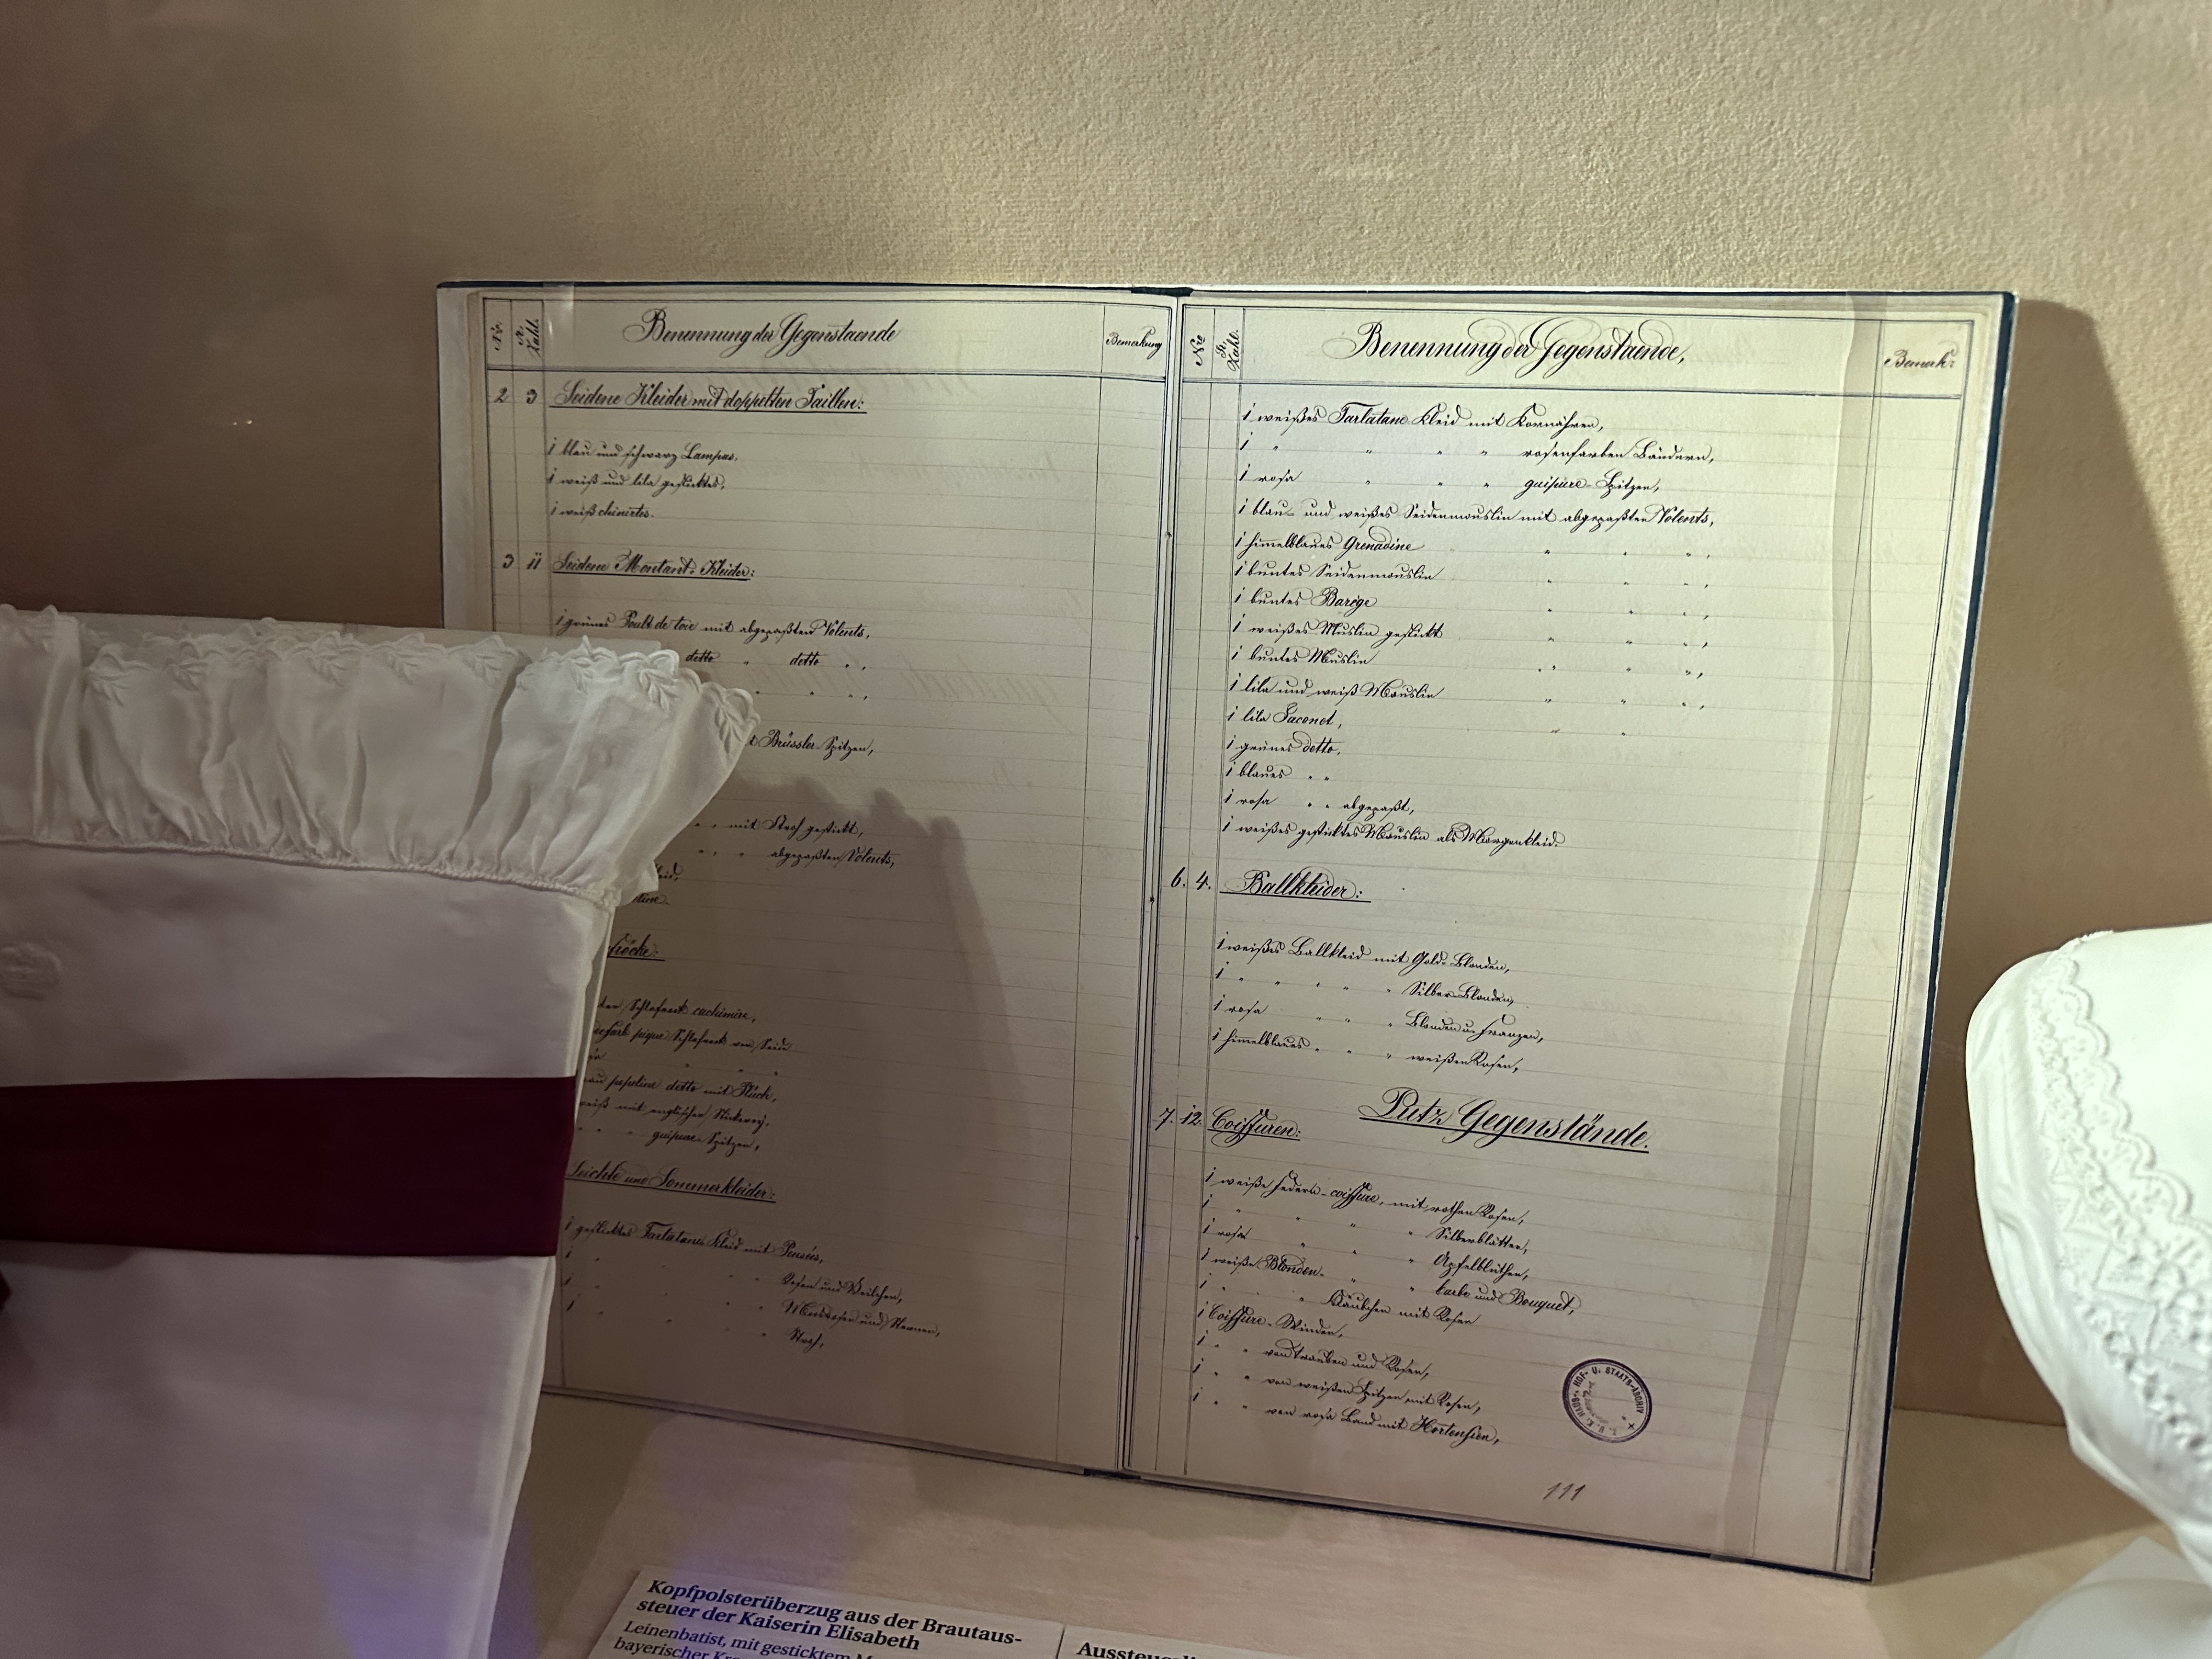 Nr.
St. Zahl.
Benennung der Gegenstaende
Bemerkung
2 3 Seidene Kleider mit doppelten Taillen:
1 blau und schwarz Lampas,
1 weiß und lila gesticktes,
1 weiß chinirtes.
3 11 Seidene Montant-Kleider:
1 grünes Poult de soie mit abgepaßten Volents,
detto " detto " "
" " " "
Brüssler-Spitzen,
" " mit Stroh gestickt,
" " " abgepaßten Volents,
röcke:
Schlafrock cachimire,
pique Schlafrock von Seide
popeline detto mit Plüsch,
weiß mit englischer Stickerey,
" " " guipure-Spitzen,
Leichte und Sommerkleider:
1 gesticktes Tarlatane Kleid mit Pensées,
1 " " " Rosen und Veilchen,
1 " " " Moosrosen und
1 " " " Stroh,
Nro
St. Zahl.
Benennung der Gegenstaende,
Bemerk:
1 weißes Tarlatane Kleid mit Kornähren,
1 " " " " rosenfarben Bändern,
1 rosa " " " guipure-Spitzen,
1 blau- und weißes Seidenmouslin mit abgepaßten Volents,
1 himmelblaues Grenadine " " " ,
1 buntes Seidenmouslin " " " ,
1 buntes Barége " " " ,
1 weißes Muslin gestickt " " " ,
1 buntes Muslin " " " ,
1 lila und weiß Mouslin " " " ,
1 lila Jaconet, " "
1 grünes detto,
1 blaues " "
1 rosa " " abgepaßt,
1 weißes gesticktes Mouslin als Morgenkleid.
6. 4. Ballkleider:
1 weißes Ballkleid mit Gold-Blonden,
1 " " " " Silber-Blonden,
1 rosa " " " Blonden u. Franzen,
1 himmelblaues " " " weißen Rosen,
Putz Gegenstände.
7. 12. Coiffuren:
1 weiße Federn-coiffure, mit rothen Rosen,
1 " " " " Silberblätter,
1 rosa " " " Apfelblüthen,
1 weiße Blonden- " " barbe und Bouquet,
1 " " Häubchen mit Rosen
1 Coiffure-Winden,
1 " " von Trauben und Rosen,
1 " " von weißen Spitzen mit Rosen,
1 " " von rosa Band mit Hortensien,
K. U. K. HAUS-, HOF- U. STAATS-ARCHIV
111
Kopfpolsterüberzug aus der Brautaus-
steuer der Kaiserin Elisabeth
Leinenbatist, mit gesticktem
bayerischer